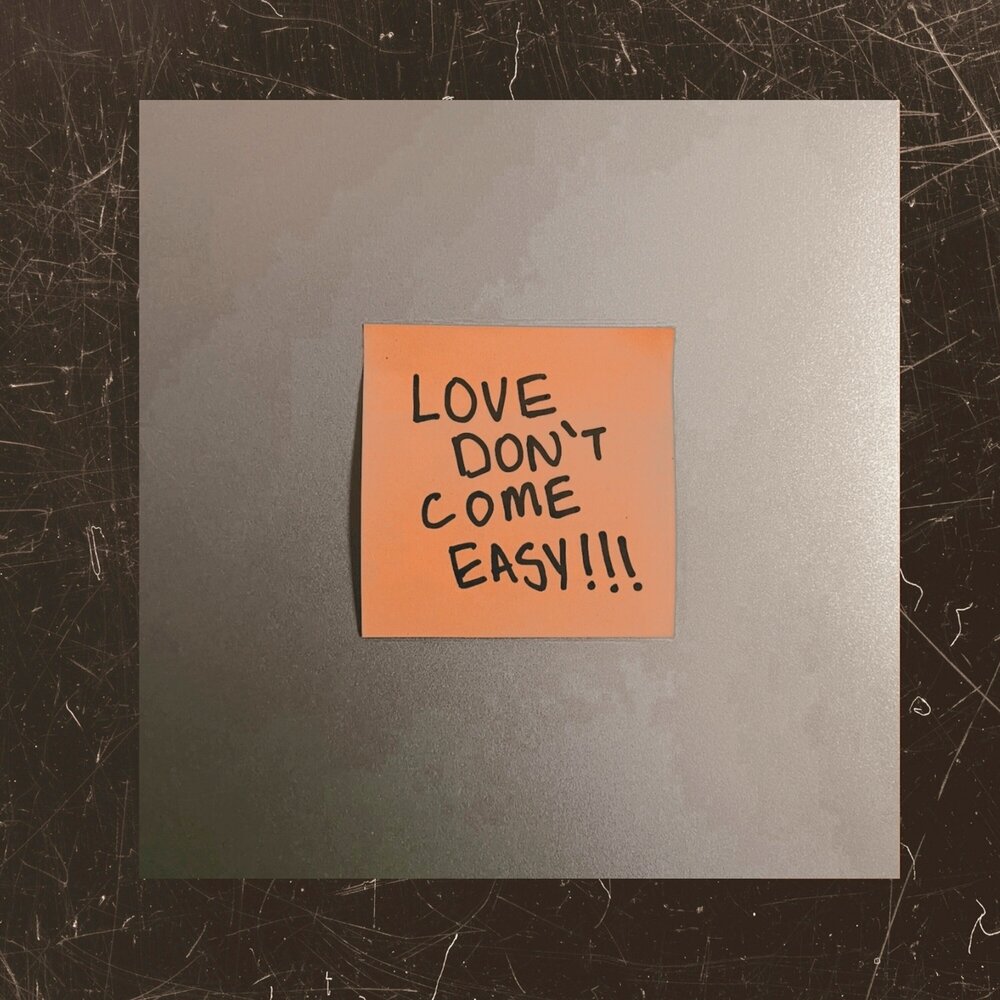 LOVE
DON'T
COME
EASY!!!